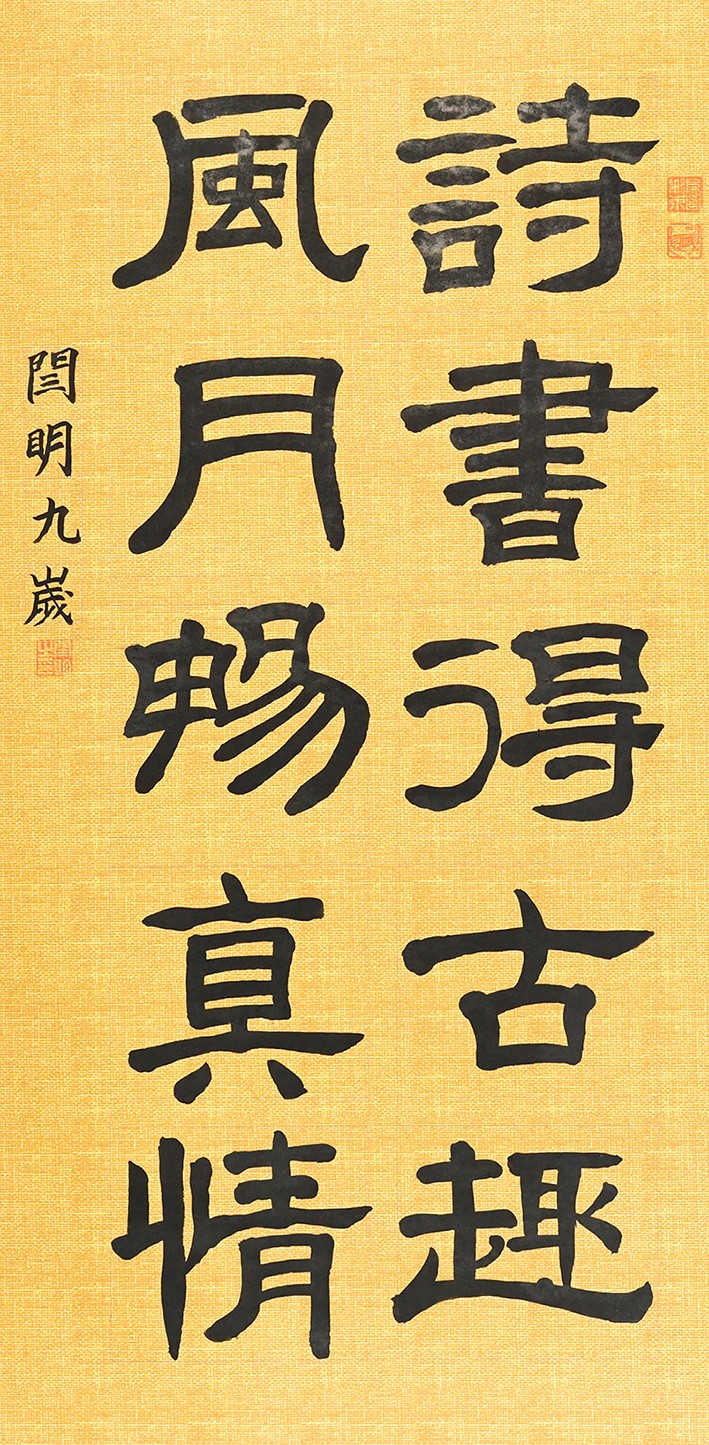 詩書得古趣
風月暢真情
閆明九歲